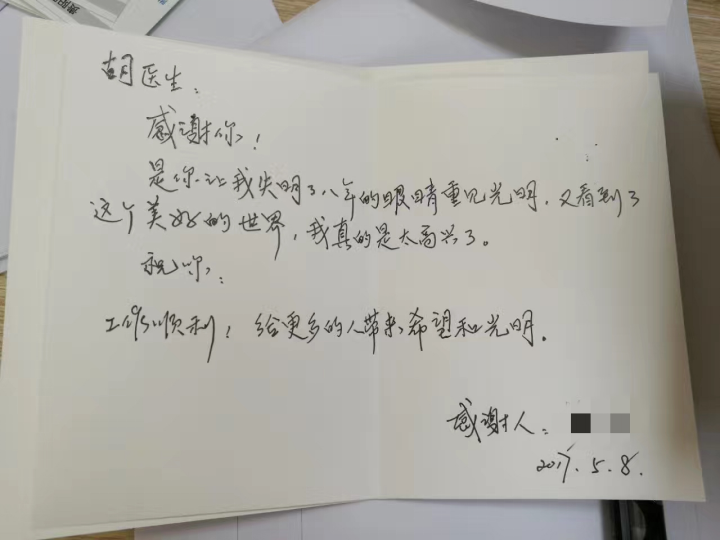 胡医生：
感谢你！
是你让我失明了八年的眼睛重见光明，又看到了
这个美好的世界，我真的是太高兴了。
祝你：
工作顺利！给更多的人带来希望和光明．
感谢人：
2017.5.8.